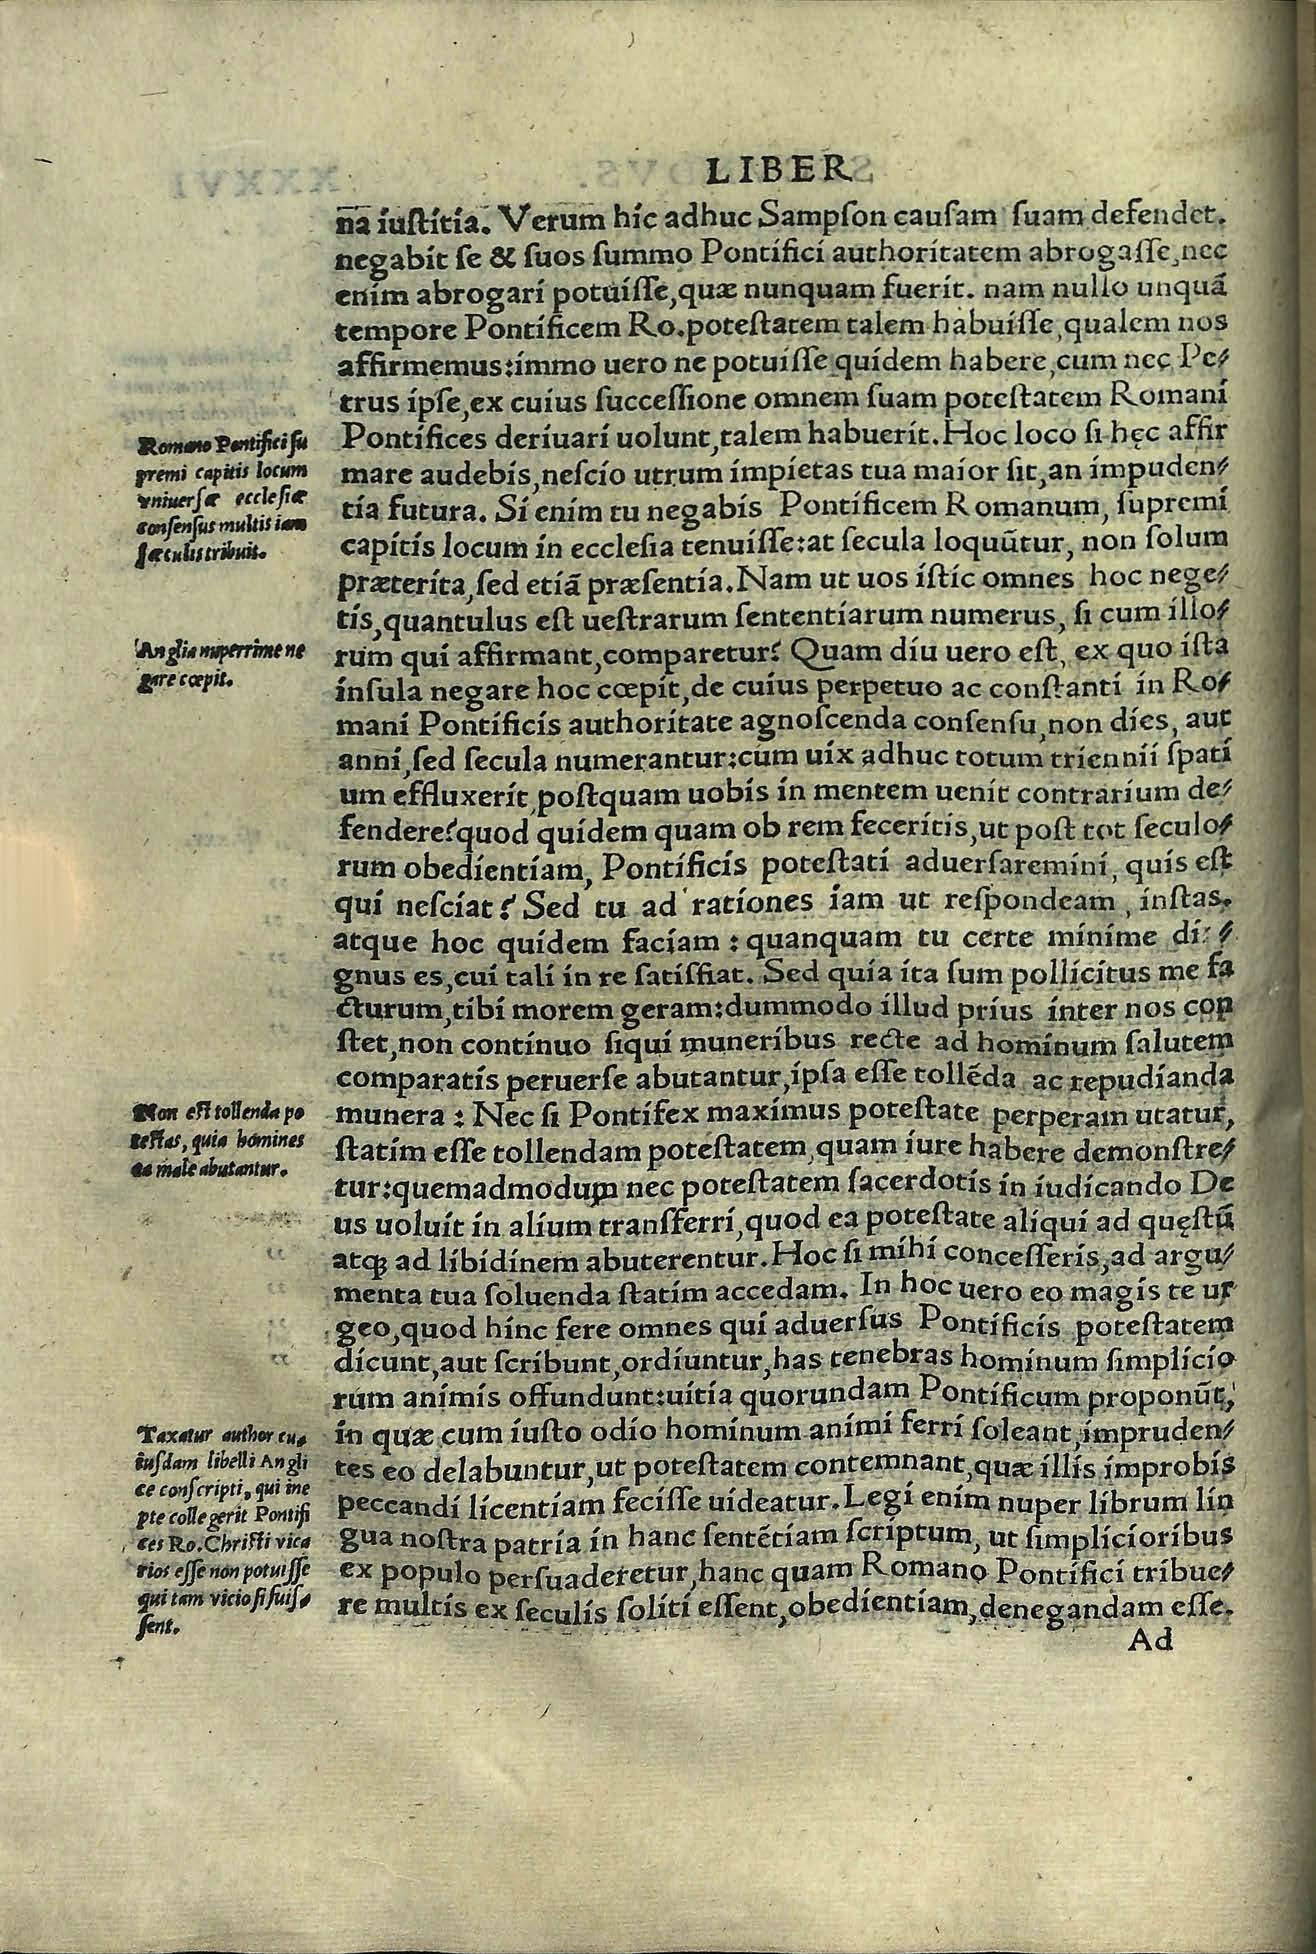 LIBER
na iustitia. Verum hic adhuc Sampson causam suam defendet.
negabit se & suos summo Pontifici authoritatem abrogasse, nec
enim abrogari potuisse, quæ nunquam fuerit. nam nullo unquã
tempore Pontificem Ro. potestatem talem habuisse, qualem nos
affirmemus: immo uero ne potuisse quidem habere, cum nec Pe/
trus ipse, ex cuius successione omnem suam potestatem Romani
Pontifices deriuari uolunt, talem habuerit. Hoc loco si hęc affir
mare audebis, nescio utrum impietas tua maior sit, an impuden/
tia futura. Si enim tu negabis Pontificem Romanum, supremi
capitis locum in ecclesia tenuisse: at secula loquũtur, non solum
præterita, sed etiã præsentia. Nam ut uos istic omnes hoc nege/
tis, quantulus est uestrarum sententiarum numerus, si cum illo/
rum qui affirmant, comparetur? Quam diu uero est, ex quo ista
insula negare hoc cœpit, de cuius perpetuo ac constanti in Ro/
mani Pontificis authoritate agnoscenda consensu, non dies, aut
anni, sed secula numerantur: cum uix adhuc totum triennii spati
um effluxerit, postquam uobis in mentem uenit contrarium de/
fendere? quod quidem quam ob rem feceritis, ut post tot seculo/
rum obedientiam, Pontificis potestati aduersaremini, quis est
qui nesciat? Sed tu ad rationes iam ut respondeam, instas.
atque hoc quidem faciam: quanquam tu certe minime di/
gnus es, cui tali in re satisfiat. Sed quia ita sum pollicitus me fa
cturum, tibi morem geram: dummodo illud prius inter nos con
stet, non continuo siqui muneribus recte ad hominum salutem
comparatis peruerse abutantur, ipsa esse tollẽda ac repudianda
munera: Nec si Pontifex maximus potestate perperam utatur,
statim esse tollendam potestatem, quam iure habere demonstre/
tur: quemadmodum nec potestatem sacerdotis in iudicando De
us uoluit in alium transferri, quod ea potestate aliqui ad quęstũ
atq; ad libidinem abuterentur. Hoc si mihi concesseris, ad argu/
menta tua soluenda statim accedam. In hoc uero eo magis te ur
geo, quod hinc fere omnes qui aduersus Pontificis potestatem
dicunt, aut scribunt, ordiuntur, has tenebras hominum simplicio
rum animis offundunt: uitia quorundam Pontificum proponũt,
in quæ cum iusto odio hominum animi ferri soleant, impruden/
tes eo delabuntur, ut potestatem contemnant, quæ illis improbis
peccandi licentiam fecisse uideatur. Legi enim nuper librum lin
gua nostra patria in hanc sentẽtiam scriptum, ut simplicioribus
ex populo persuaderetur, hanc quam Romano Pontifici tribue/
re multis ex seculis soliti essent, obedientiam, denegandam esse.
Ad
Romano Pontifici su
premi capitis locum
vniuersæ ecclesiæ
consensus multis iam
sæculis tribuit.
Anglia nuperrime ne
gare cœpit.
Non est tollenda po
testas, quia homines
ea male abutantur.
Taxatur author cu/
iusdam libelli Angli
ce conscripti, qui ine
pte collegerit Pontifi
ces Ro. Christi vica
rios esse non potuisse
qui tam viciosi fuis/
sent.